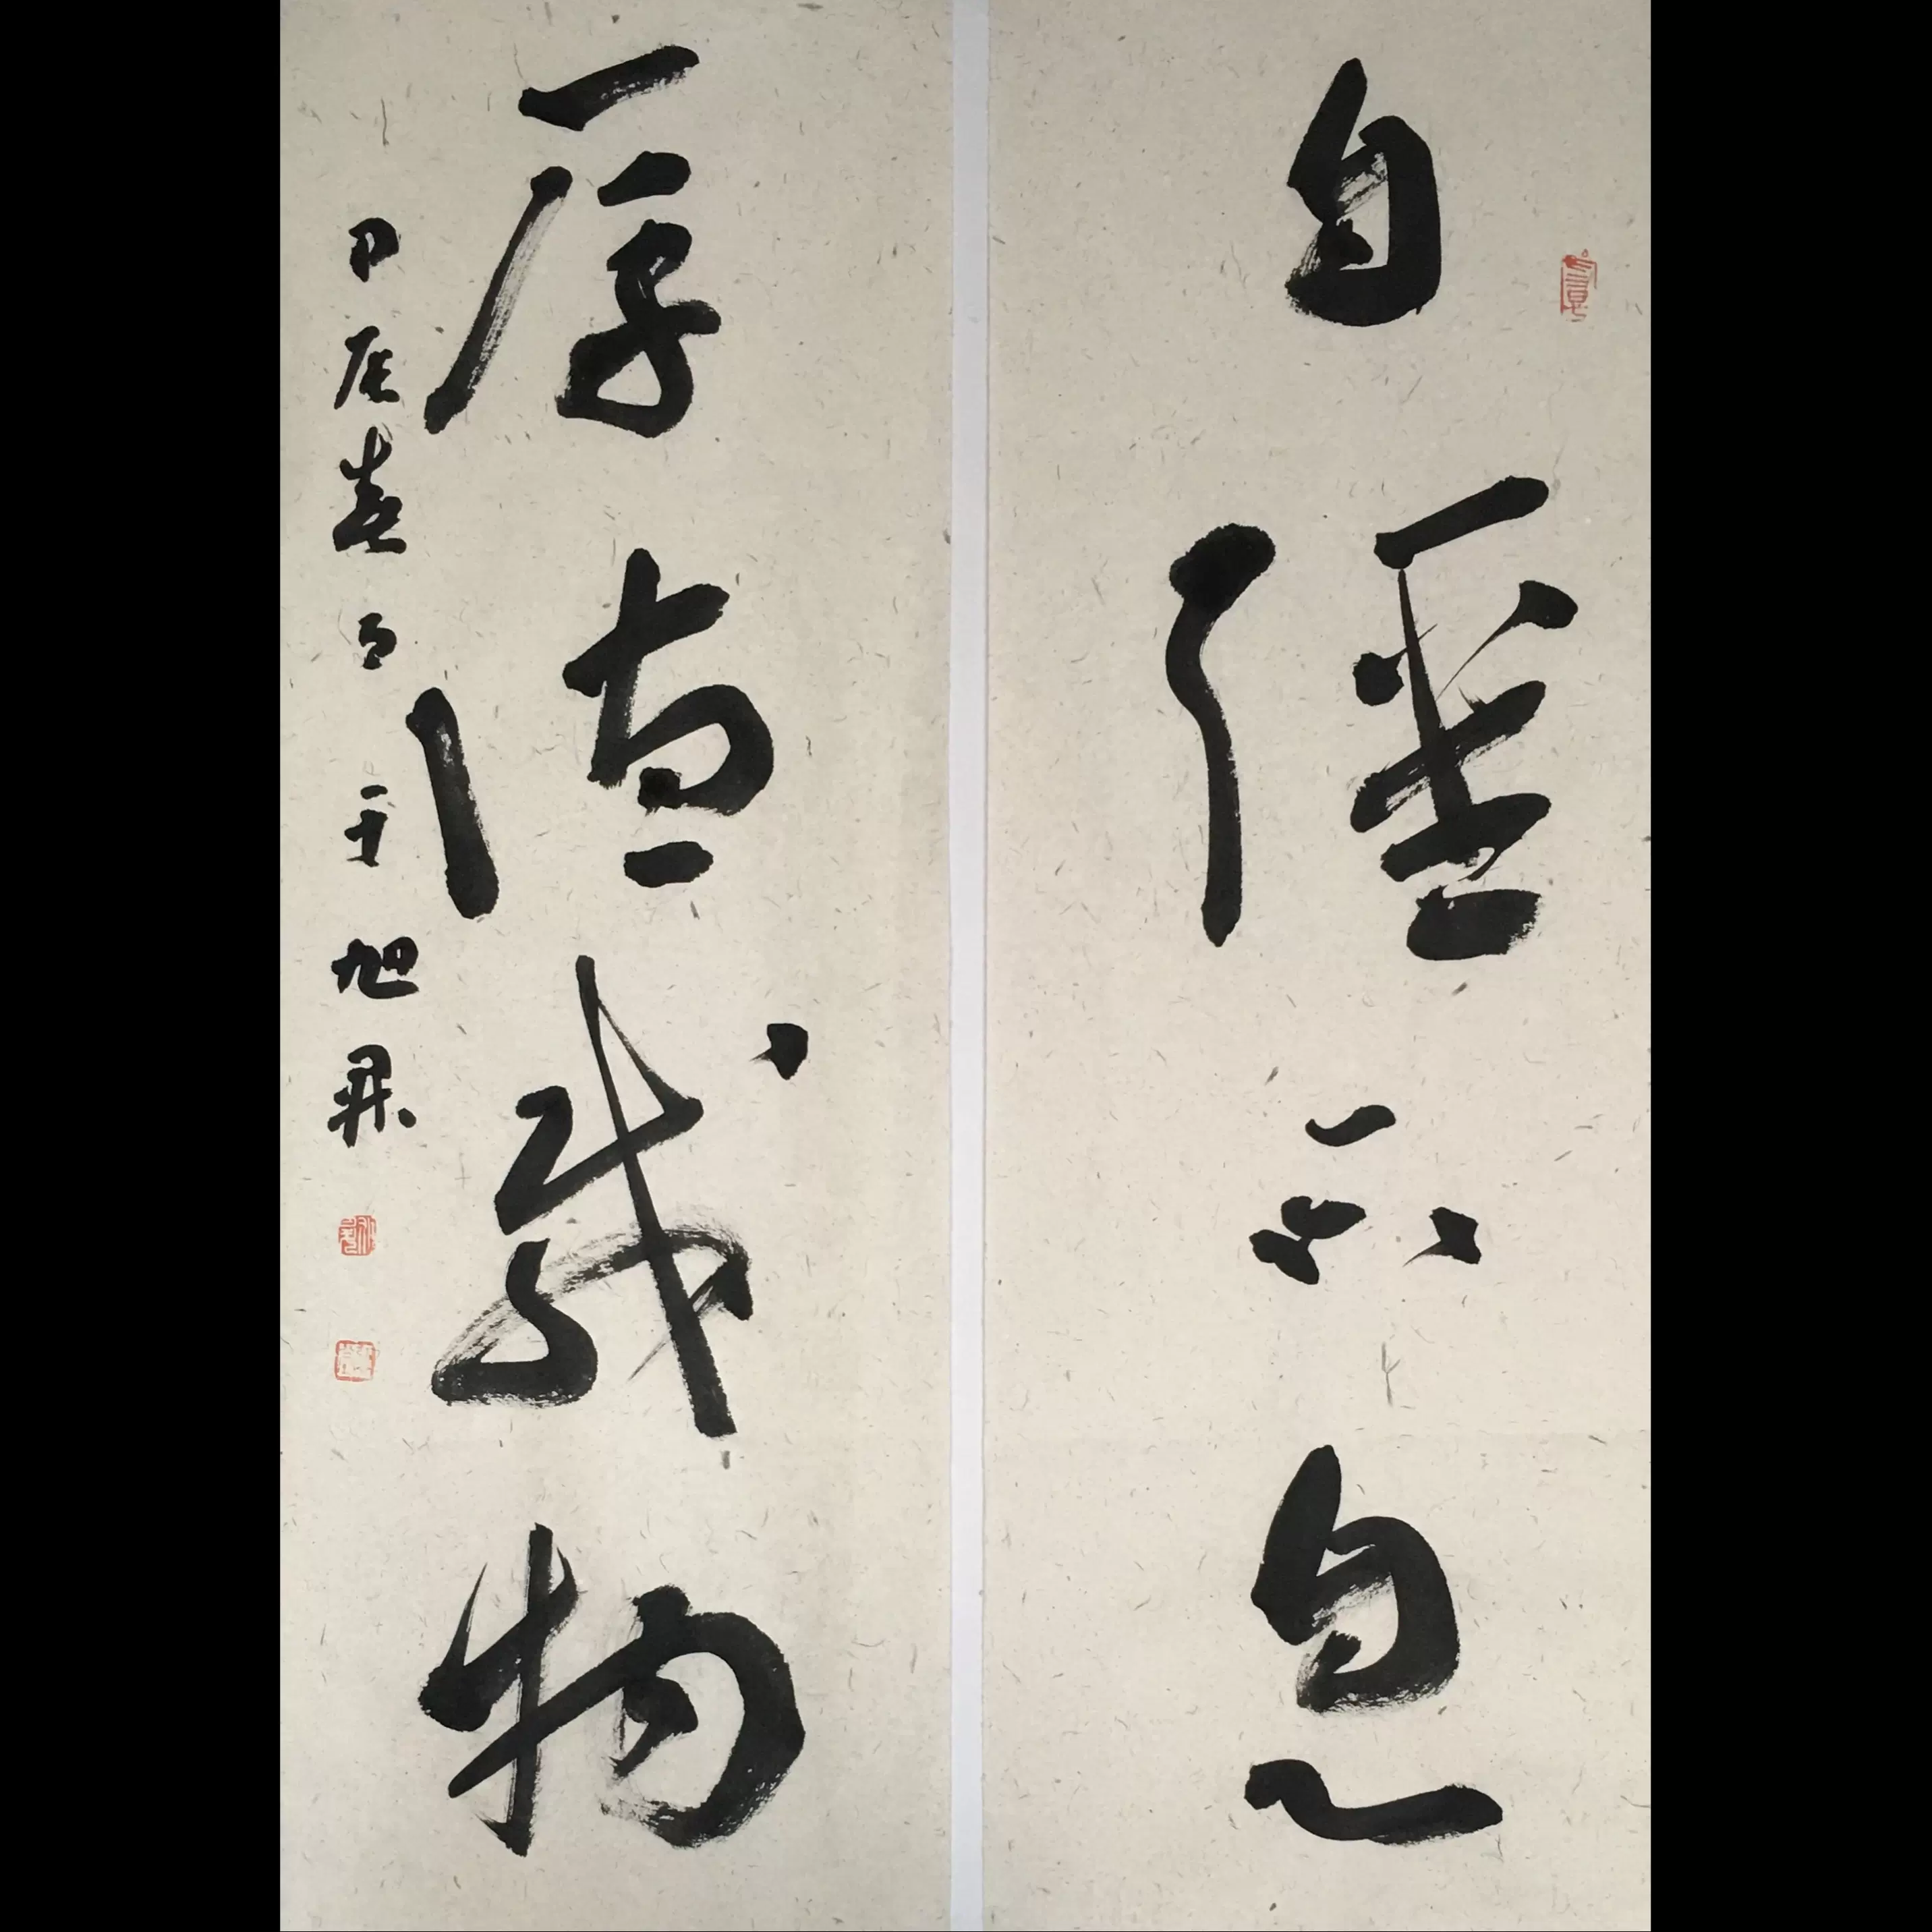 自彊不息
厚德載物
甲辰春日 于旭